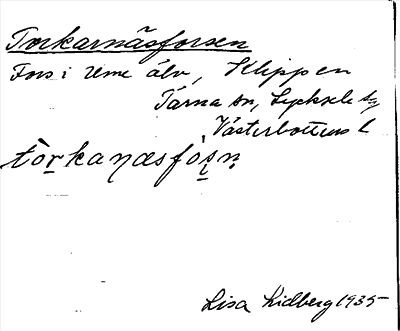 Torkarnäsforsen
Fors i Ume älv, Klippen
Tärna sn, Lycksele tg
Västerbottens l
tòrkanæsfòṣṇ
Lisa Lidberg 1935